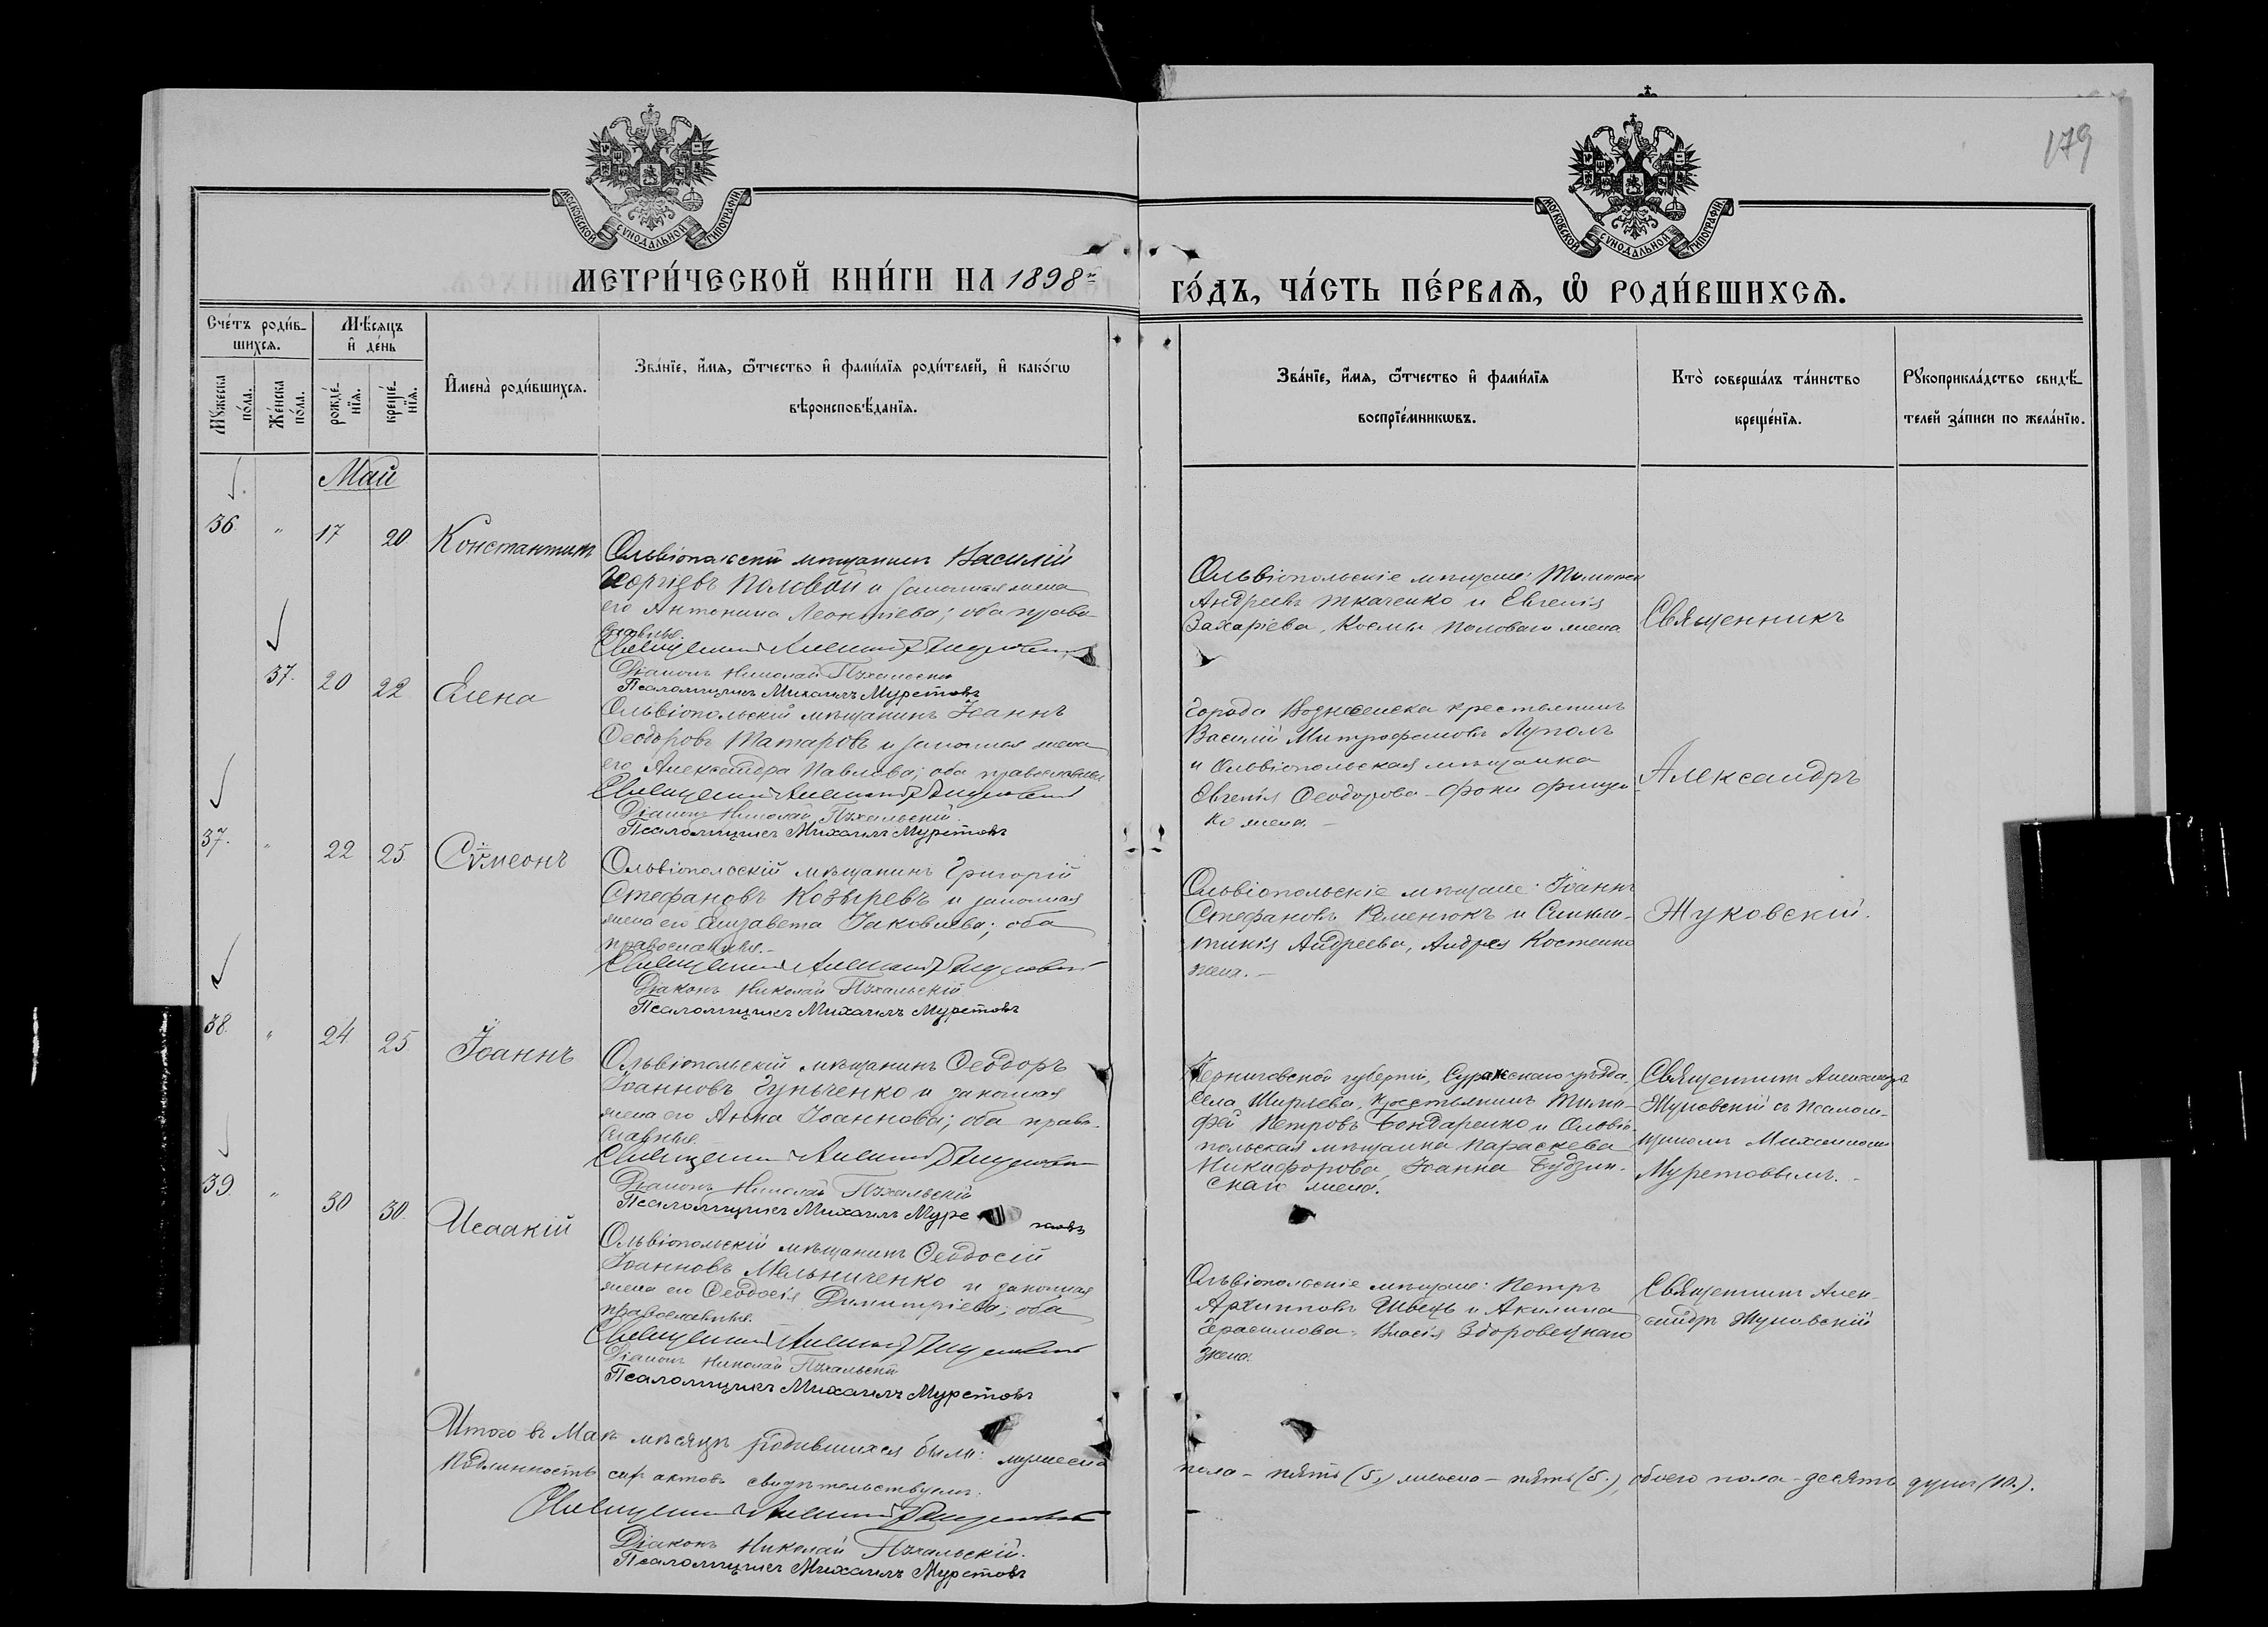 179
МОСКОВСКОЙ СѴНОДАЛЬНОЙ ТИПОГРАФІИ
МОСКОВСКОЙ СѴНОДАЛЬНОЙ ТИПОГРАФІИ
МЕТРИ́ЧЕСКОЙ КНИ́ГИ НА 1898й
ГО́ДЪ, ЧА́СТЬ ПЕ́РВАѦ, Ѡ҆ РОДИ́ВШИХСѦ.
Сче́тъ роди́в-
шихсѧ.
Мꙋ́жеска по́ла.
Же́нска по́ла.
Мѣ́сѧцъ
и҆ де́нь
рожде́-
нїѧ.
креще́-
нїѧ.
И҆мена̀ роди́вшихсѧ.
Зва́нїе, и҆́мѧ, ѻ҆́тчество и҆ фами́лїѧ роди́телей, и҆ како́гѡ
вѣроисповѣ́данїѧ.
Зва́нїе, и҆́мѧ, ѻ҆́тчество и҆ фами́лїѧ
воспрїе́мникѡвъ.
Кто̀ соверша́лъ та́инство
креще́нїѧ.
Рꙋкоприкла́дство свидѣ́-
телей за́писи по жела́нїю.
Май
36. " 17 20. Константинъ
Ольвіопольскій мѣщанинъ Василій
Георгіевъ Половой и законная жена
его Антонина Леонтіева; оба право-
славные.
Священникъ Александръ Жуковскій
Діаконъ Николай Пѣхальскій
Псаломщикъ Михаилъ Муретовъ
Ольвіопольскіе мѣщане: Тимофей
Андреевъ Ткаченко и Евгенія
Захаріева, Космы Полового жена.
Священникъ
37. 20 22 Елена
Ольвіопольскій мѣщанинъ Іоаннъ
Ѳеодоровъ Татаровъ и законная жена
его Александра Павлова; оба православные
Священникъ Александръ Жуковскій
Діаконъ Николай Пѣхальскій.
Псаломщикъ Михаилъ Муретовъ
Города Вознесенска крестьянинъ
Василій Митрофановъ Луполъ
и Ольвіопольская мѣщанка
Евгенія Ѳеодорова
жена.
Александръ
37. " 22 25. Сѵмеонъ
Ольвіопольскій мѣщанинъ Григорій
Стефановъ Козыревъ и законная
жена его Елизавета Іаковлева; оба
православные.
Священникъ Александръ Жуковскій
Діаконъ Николай Пѣхальскій
Псаломщикъ Михаилъ Муретовъ
Ольвіопольскіе мѣщане: Іоаннъ
Стефановъ Романюкъ и Синкли-
тикія Андреева, Андрея Костенко
жена.
Жуковскій.
38. " 24 25 Іоаннъ
Ольвіопольскій мѣщанинъ Ѳеодоръ
Іоанновъ Гульченко и законная
жена его Анна Іоаннова; оба право-
славные.
Священникъ Александръ Жуковскій
Діаконъ Николай Пѣхальскій
Псаломщикъ Михаилъ Муретовъ
Черниговской губерніи, Суражскаго уѣзда,
села Ширяева, крестьянинъ Тимо-
фей Петровъ Бондаренко и Ольвіо-
польская мѣщанка Параскева
Никифорова, Іоанна Будзин-
скаго жена.
Священникъ Александръ
Жуковскій съ псалом-
щикомъ Михаиломъ
Муретовымъ.
39. " 30 30. Исаакій
Ольвіопольскій мѣщанинъ Ѳеодосій
Іоанновъ Мельниченко и законная
жена его Ѳеодосія Димитріева; оба
православные.
Священникъ Александръ Жуковскій
Діаконъ Николай Пѣхальскій
Псаломщикъ Михаилъ Муретовъ
Ольвіопольскіе мѣщане: Петръ
Архиповъ Швецъ и Акилина
Герасимова, Власія Здоровецкаго
жена.
Священникъ Алек-
сандръ Жуковскій
Итого въ Маѣ мѣсяцѣ родившихся было: мужеска
пола – пять (5), женска – пять (5.), обоего пола – десять душъ (10.).
Подлинность сихъ актовъ свидѣтельствуемъ.
Священникъ Александръ Жуковскій
Діаконъ Николай Пѣхальскій.
Псаломщикъ Михаилъ Муретовъ